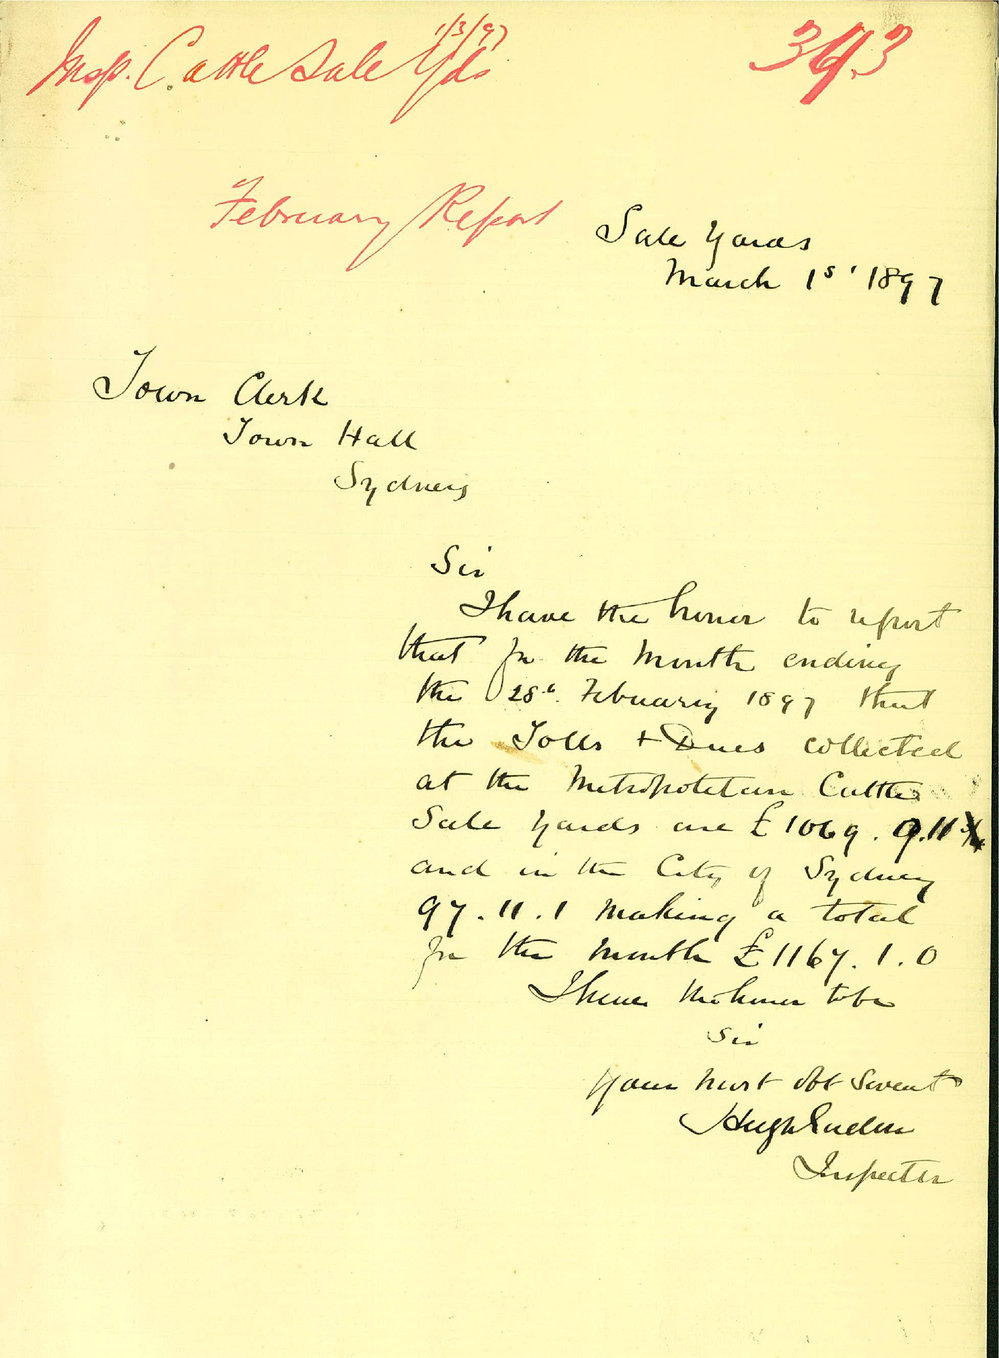 1/3/97
Insp. Cattle Sale Yds
343
February Report
Sale Yards
March 1st 1897
Town Clerk
Town Hall
Sydney
Sir
I have the honor to report
that for the Month ending
the 28th February 1897 that
the Tolls + Dues collected
at the Metropolitan Cattle
Sale Yards are £1069. 9.11
and in the City of Sydney
97.11.1 making a total
for the Month £1167.1.0
I have the honor to be
Sir
Your most obt Servent
Hugh
Inspector